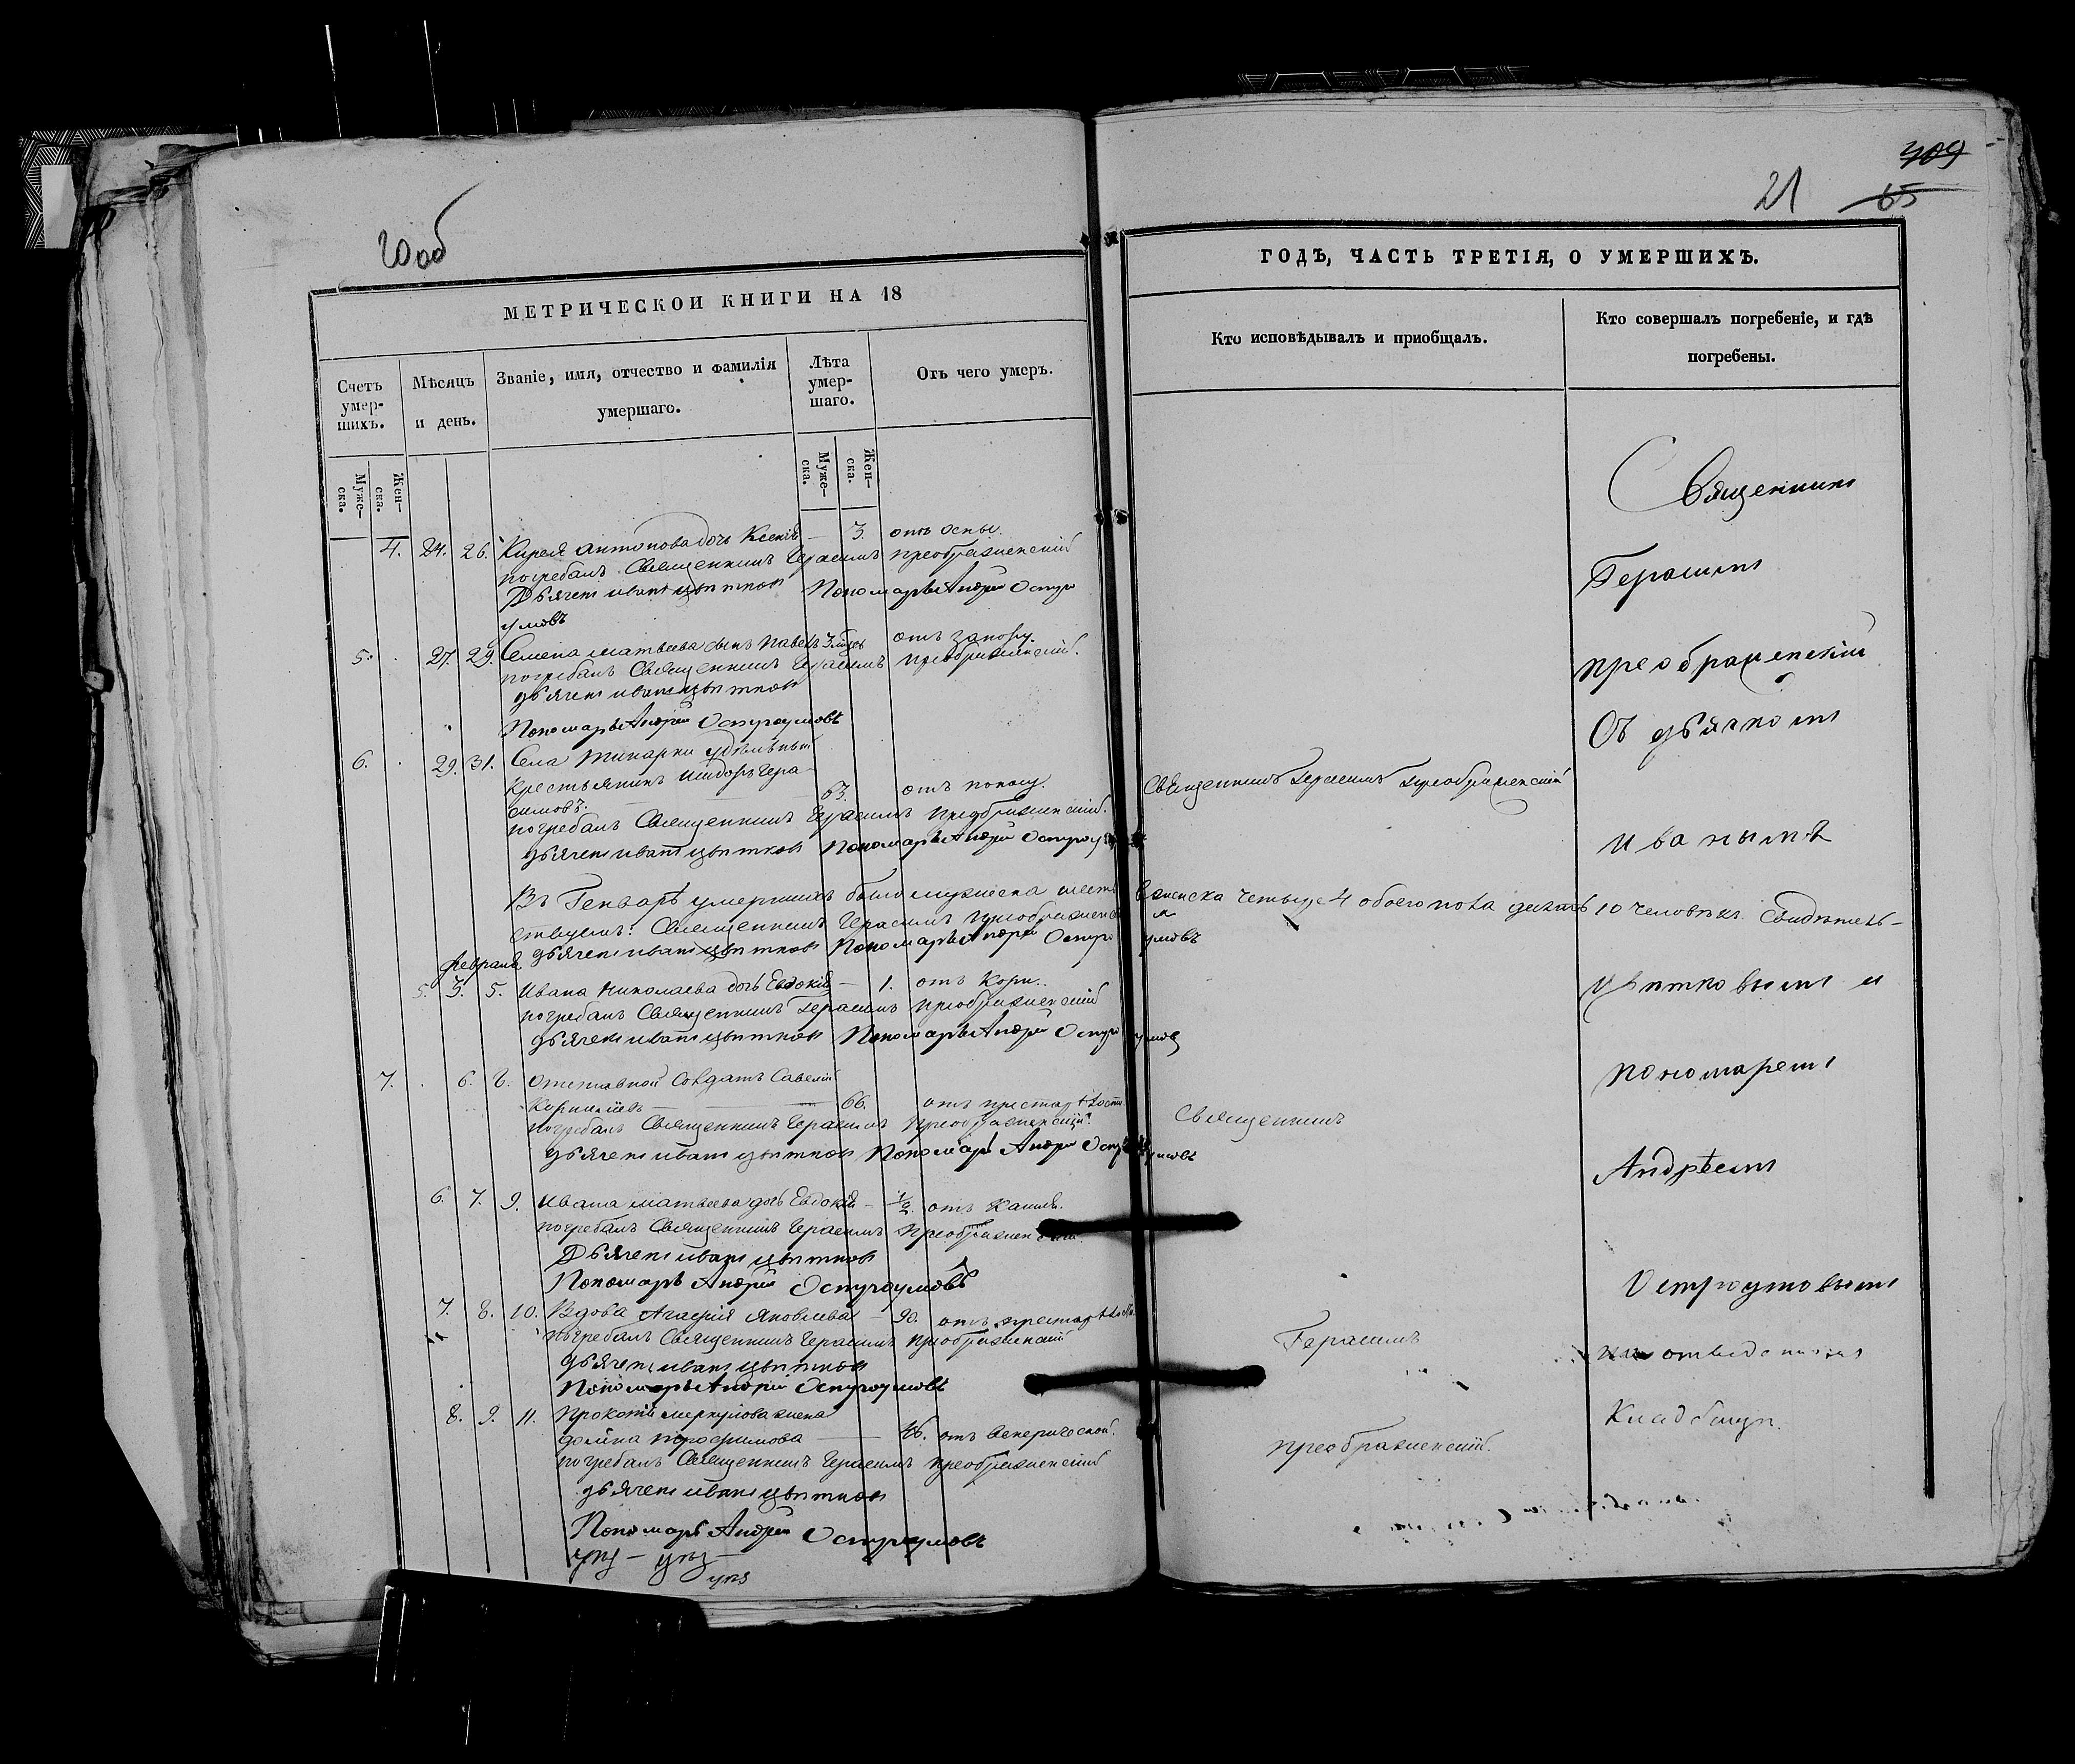 20об
МЕТРИЧЕСКОЙ КНИГИ НА 18
Счетъ умер-шихъ.
Мѣсяцъ и день.
Званіе, имя, отчество и фамилія умершаго.
Лѣта умер-шаго.
Отъ чего умеръ.
Муже-ска.
Жен-ска.
Муже-ска.
Жен-ска.
4. 24. 26. Кирея Антонова дочь Ксенія — 3. отъ оспы.
погребалъ Священникъ Герасимъ Преображенскій
Дьячекъ Иванъ Цвѣтковъ Пономарь Андрей Остро
умовъ
5. 27. 29. Семена Матвѣева сынъ Павелъ 3 отъ запору.
погребалъ Священникъ Герасимъ Преображенскій.
дьячекъ Иванъ Цвѣтковъ
Пономарь Андрей Остроумовъ
6. 29. 31. Села удѣльный
крестьянинъ Исидоръ Гера-
симовъ. 63. отъ поносу.
погребалъ Священникъ Герасимъ Преображенскій.
дьячекъ Иванъ Цвѣтковъ Пономарь Андрей Остроу
Въ Генварѣ умершихъ было мужеска шесть 6 женска четыре 4 обоего пола десять 10 человѣкъ. Свидѣтель-
ствуемъ: Священникъ Герасимъ Преображенскій
дьячекъ Иванъ Цвѣтковъ Пономарь Андрей Остроумовъ
Февраль
5. 3. 5. Ивана Николаева дочь Евдокія — 1. отъ Кори.
погребалъ Священникъ Герасимъ Преображенскій
дьячекъ Иванъ Цвѣтковъ Пономарь Андрей Остроумовъ
7. 6. 8. Отставной Солдатъ Савелій
Корнилiевъ — 66. отъ престарѣлости.
погребалъ Священникъ Герасимъ Преображенскій.
дьячекъ Иванъ Цвѣтковъ Пономарь Андрей Остроумовъ
6. 7. 9. Ивана Матвѣева дочь Евдокія — 1/2. отъ Кашля.
погребалъ Священникъ Герасимъ Преображенскій.
Дьячекъ Иванъ Цвѣтковъ
Пономарь Андрей Остроумовъ
7. 8. 10. Вдова Агафія Яковлева — 90. отъ престарѣлости.
погребалъ Священникъ Герасимъ Преображенскій
дьячекъ Иванъ Цвѣтковъ
Пономарь Андрей Остроумовъ
8. 9. 11. Прокофія Меркулова жена
Трофимова — отъ венерической.
погребалъ Священникъ Герасимъ Преображенскій
дьячекъ Иванъ Цвѣтковъ
Пономарь Андрей Остроумовъ
409
21 65
ГОДЪ, ЧАСТЬ ТРЕТІЯ, О УМЕРШИХЪ.
Кто исповѣдывалъ и приобщалъ.
Кто совершалъ погребеніе, и гдѣ погребены.
Священникъ Герасимъ Преображенскій
Священникъ
Герасимъ
Преображенскій.
Священникъ
Герасимъ
Преображенскій
Съ дьячкомъ
Иваномъ
Цвѣтковымъ и
пономаремъ
Андрѣемъ
Остроумовымъ
на отведенномъ
Кладбищѣ.